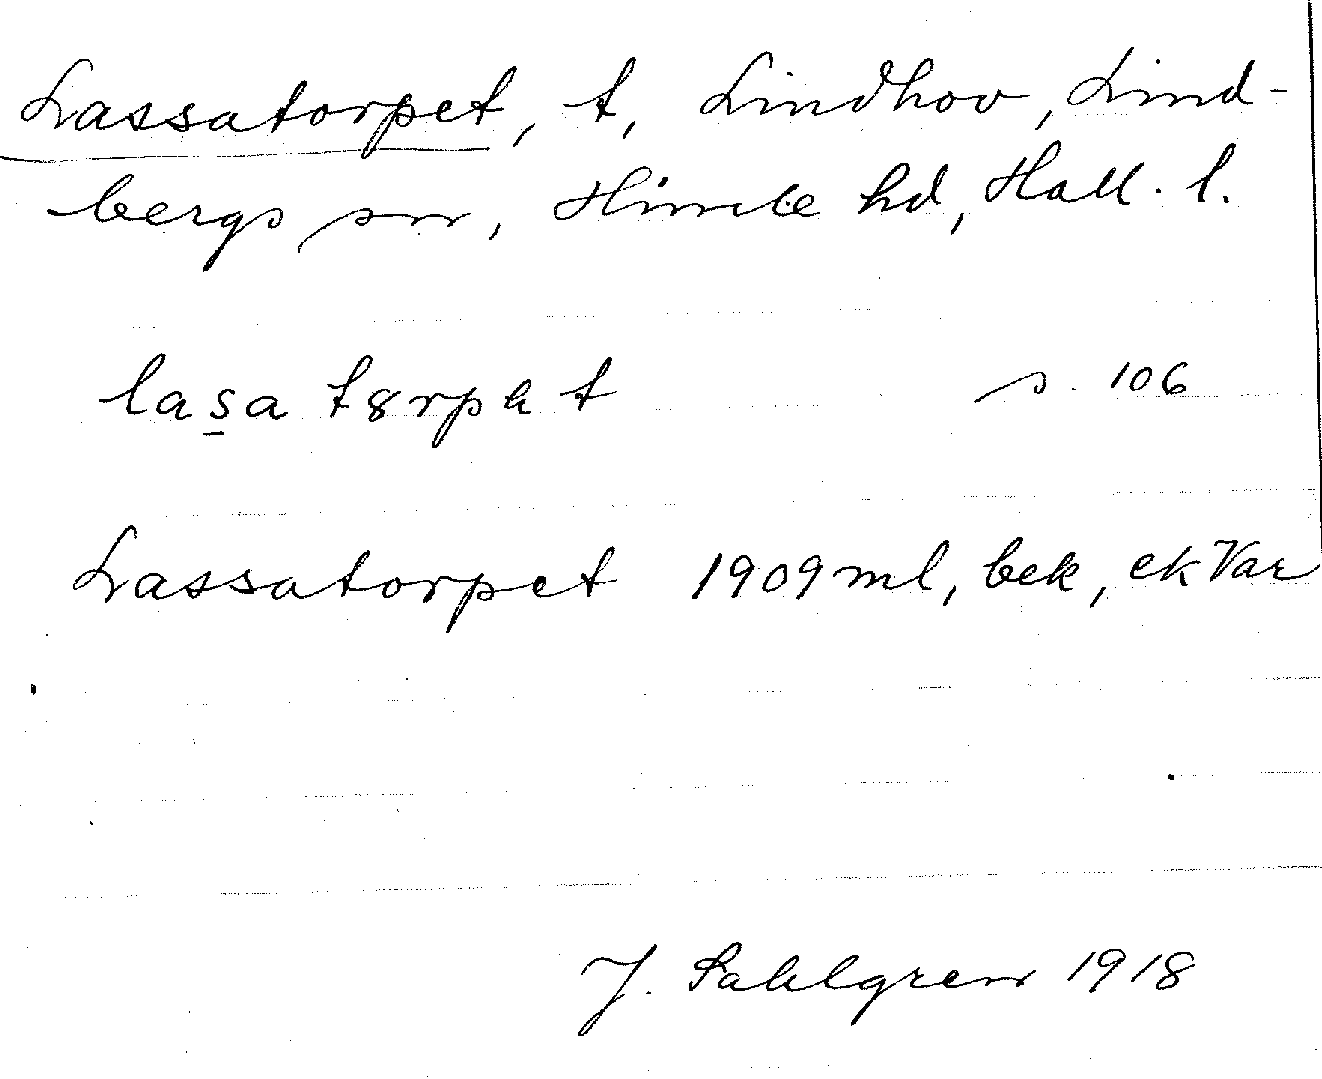 Lassatorpet, t, Lindhov, Lind-
bergs sn, Himle hd, Hall. l.
las̱a tȣrpət s. 106
Lassatorpet 1909 ml, bek, ek Var
J. Sahlgren 1918